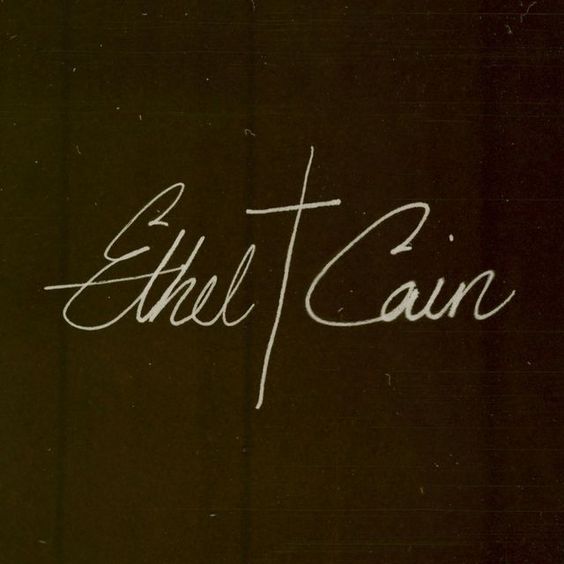 Ethel † Cain